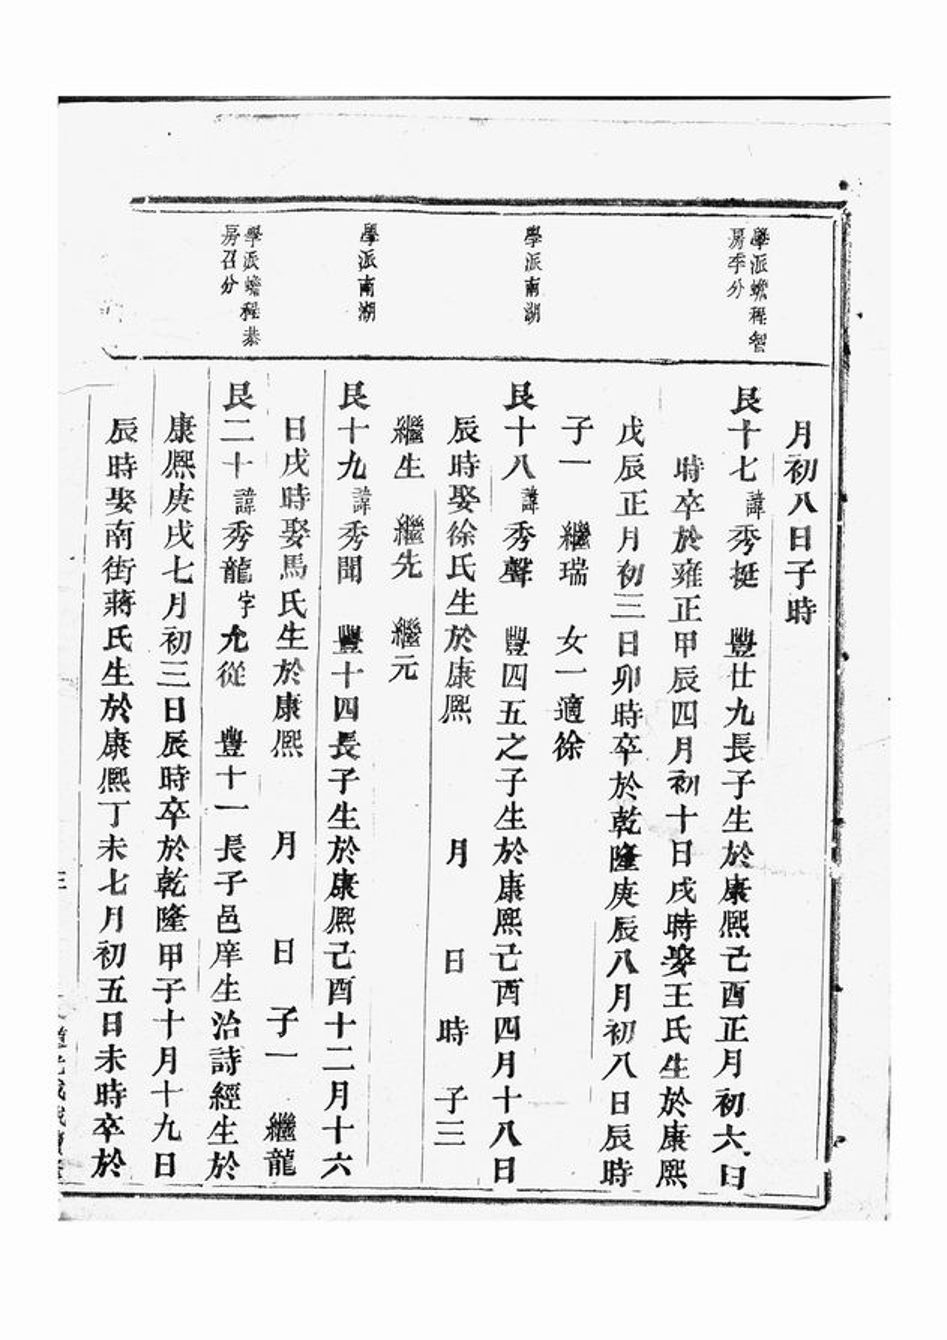 月初八日子時
學派蟾程智
房季分
艮十七諱秀挺　豐廿九長子生於康熙己酉正月初六日
時卒於雍正甲辰四月初十日戌時娶王氏生於康熙
戊辰正月初三日卯時卒於乾隆庚辰八月初八日辰時
子一　繼瑞　女一適徐
學派南湖
艮十八諱秀聲　豐四五之子生於康熙己酉四月十八日
辰時娶徐氏生於康熙　月　日　時　子三
繼生　繼先　繼元
學派南湖
艮十九諱秀聞　豐十四長子生於康熙己酉十二月十六
日戌時娶馬氏生於康熙　月　日　子一　繼龍
學派蟾程恭
房召分
艮二十諱秀龍字允從　豐十一長子邑庠生治詩經生於
康熙庚戌七月初三日辰時卒於乾隆甲子十月十九日
辰時娶南街蔣氏生於康熙丁未七月初五日未時卒於